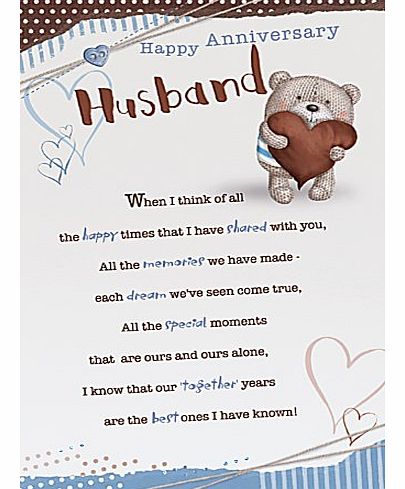 Happy Anniversary
Husband
When I think of all
the happy times that I have shared with you,
All the memories we have made -
each dream we've seen come true,
All the special moments
that are ours and ours alone,
I know that our 'together' years
are the best ones I have known!